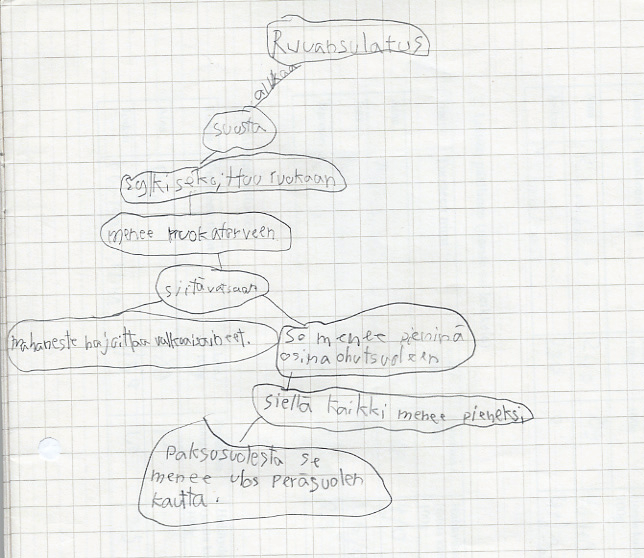 Ruuabsulatus
alkaa
suusta
sylki sekoittuu ruokaan
menee ruokatorveen
siitä vasaan
mahaneste hajoittaa valkuaisaineet.
se menee pieninä
osina ohutsuoleen
siellä kaikki menee pieneksi,
Paksusuolesta se
menee ulos peräsuolen
kautta.